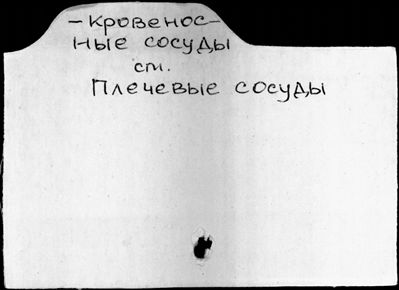 – Кровенос–
ные сосуды
см.
Плечевые сосуды